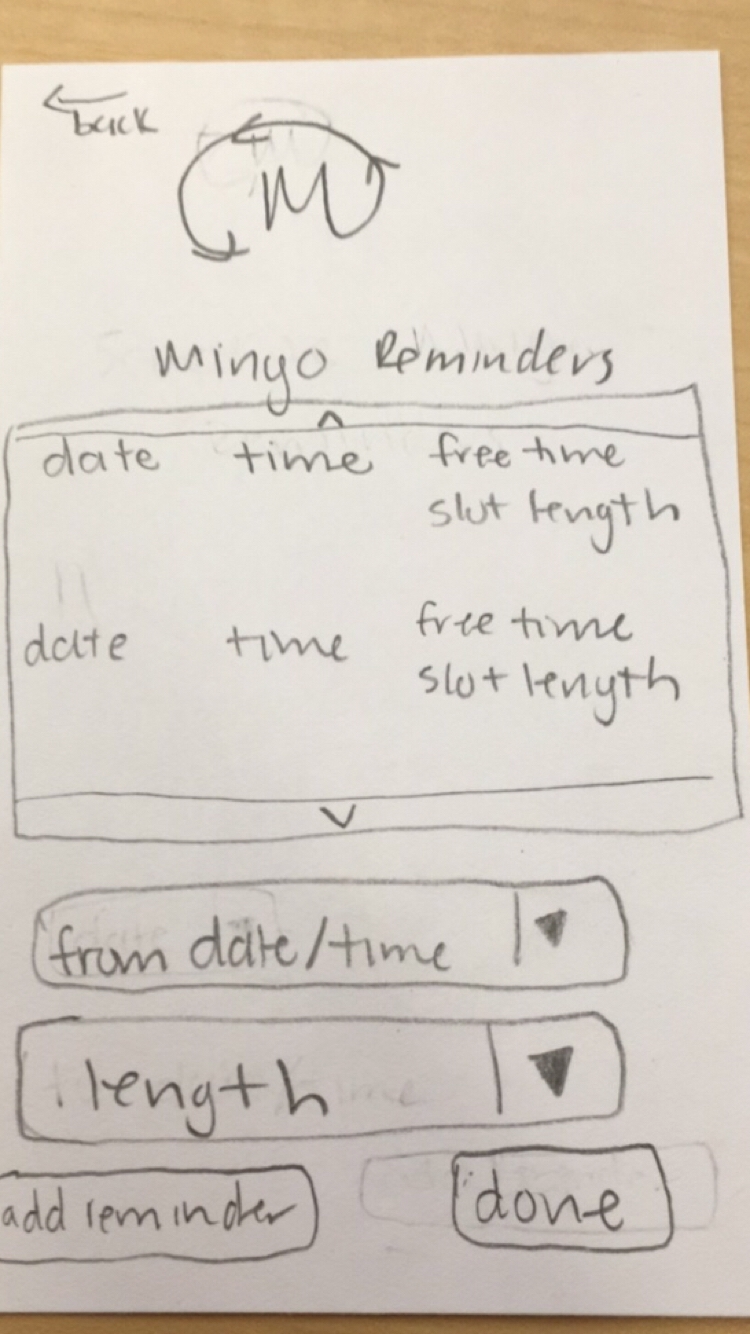 back
M
Mingo Reminders
date time free time
slot length
date time free time
slot length
from date/time
length
add reminder
done